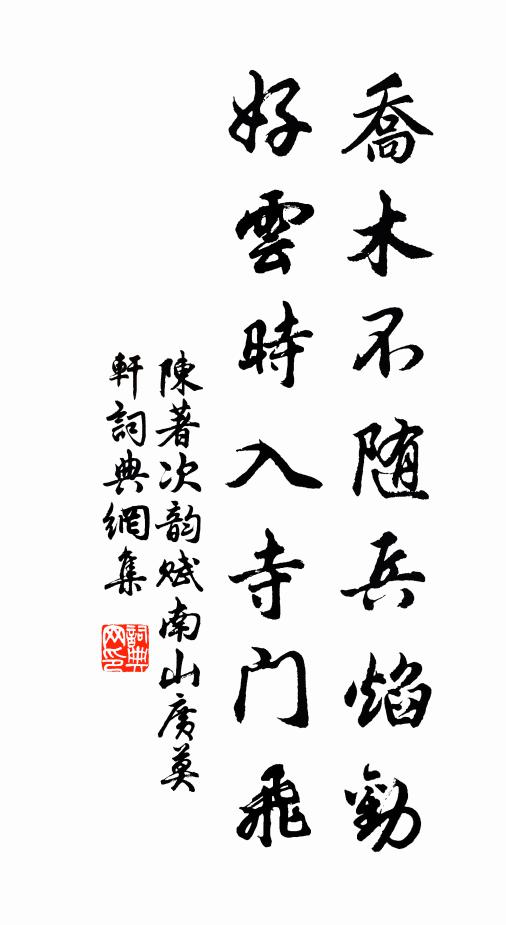 喬木不随兵焰勁
好雲時入寺門飛
陳著次韵賦南山廣莫
軒詞典網集
詞典
网印